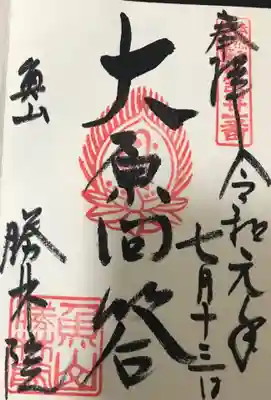 奉拝
令和元年
七月十三日
大原問答
魚山
勝林院